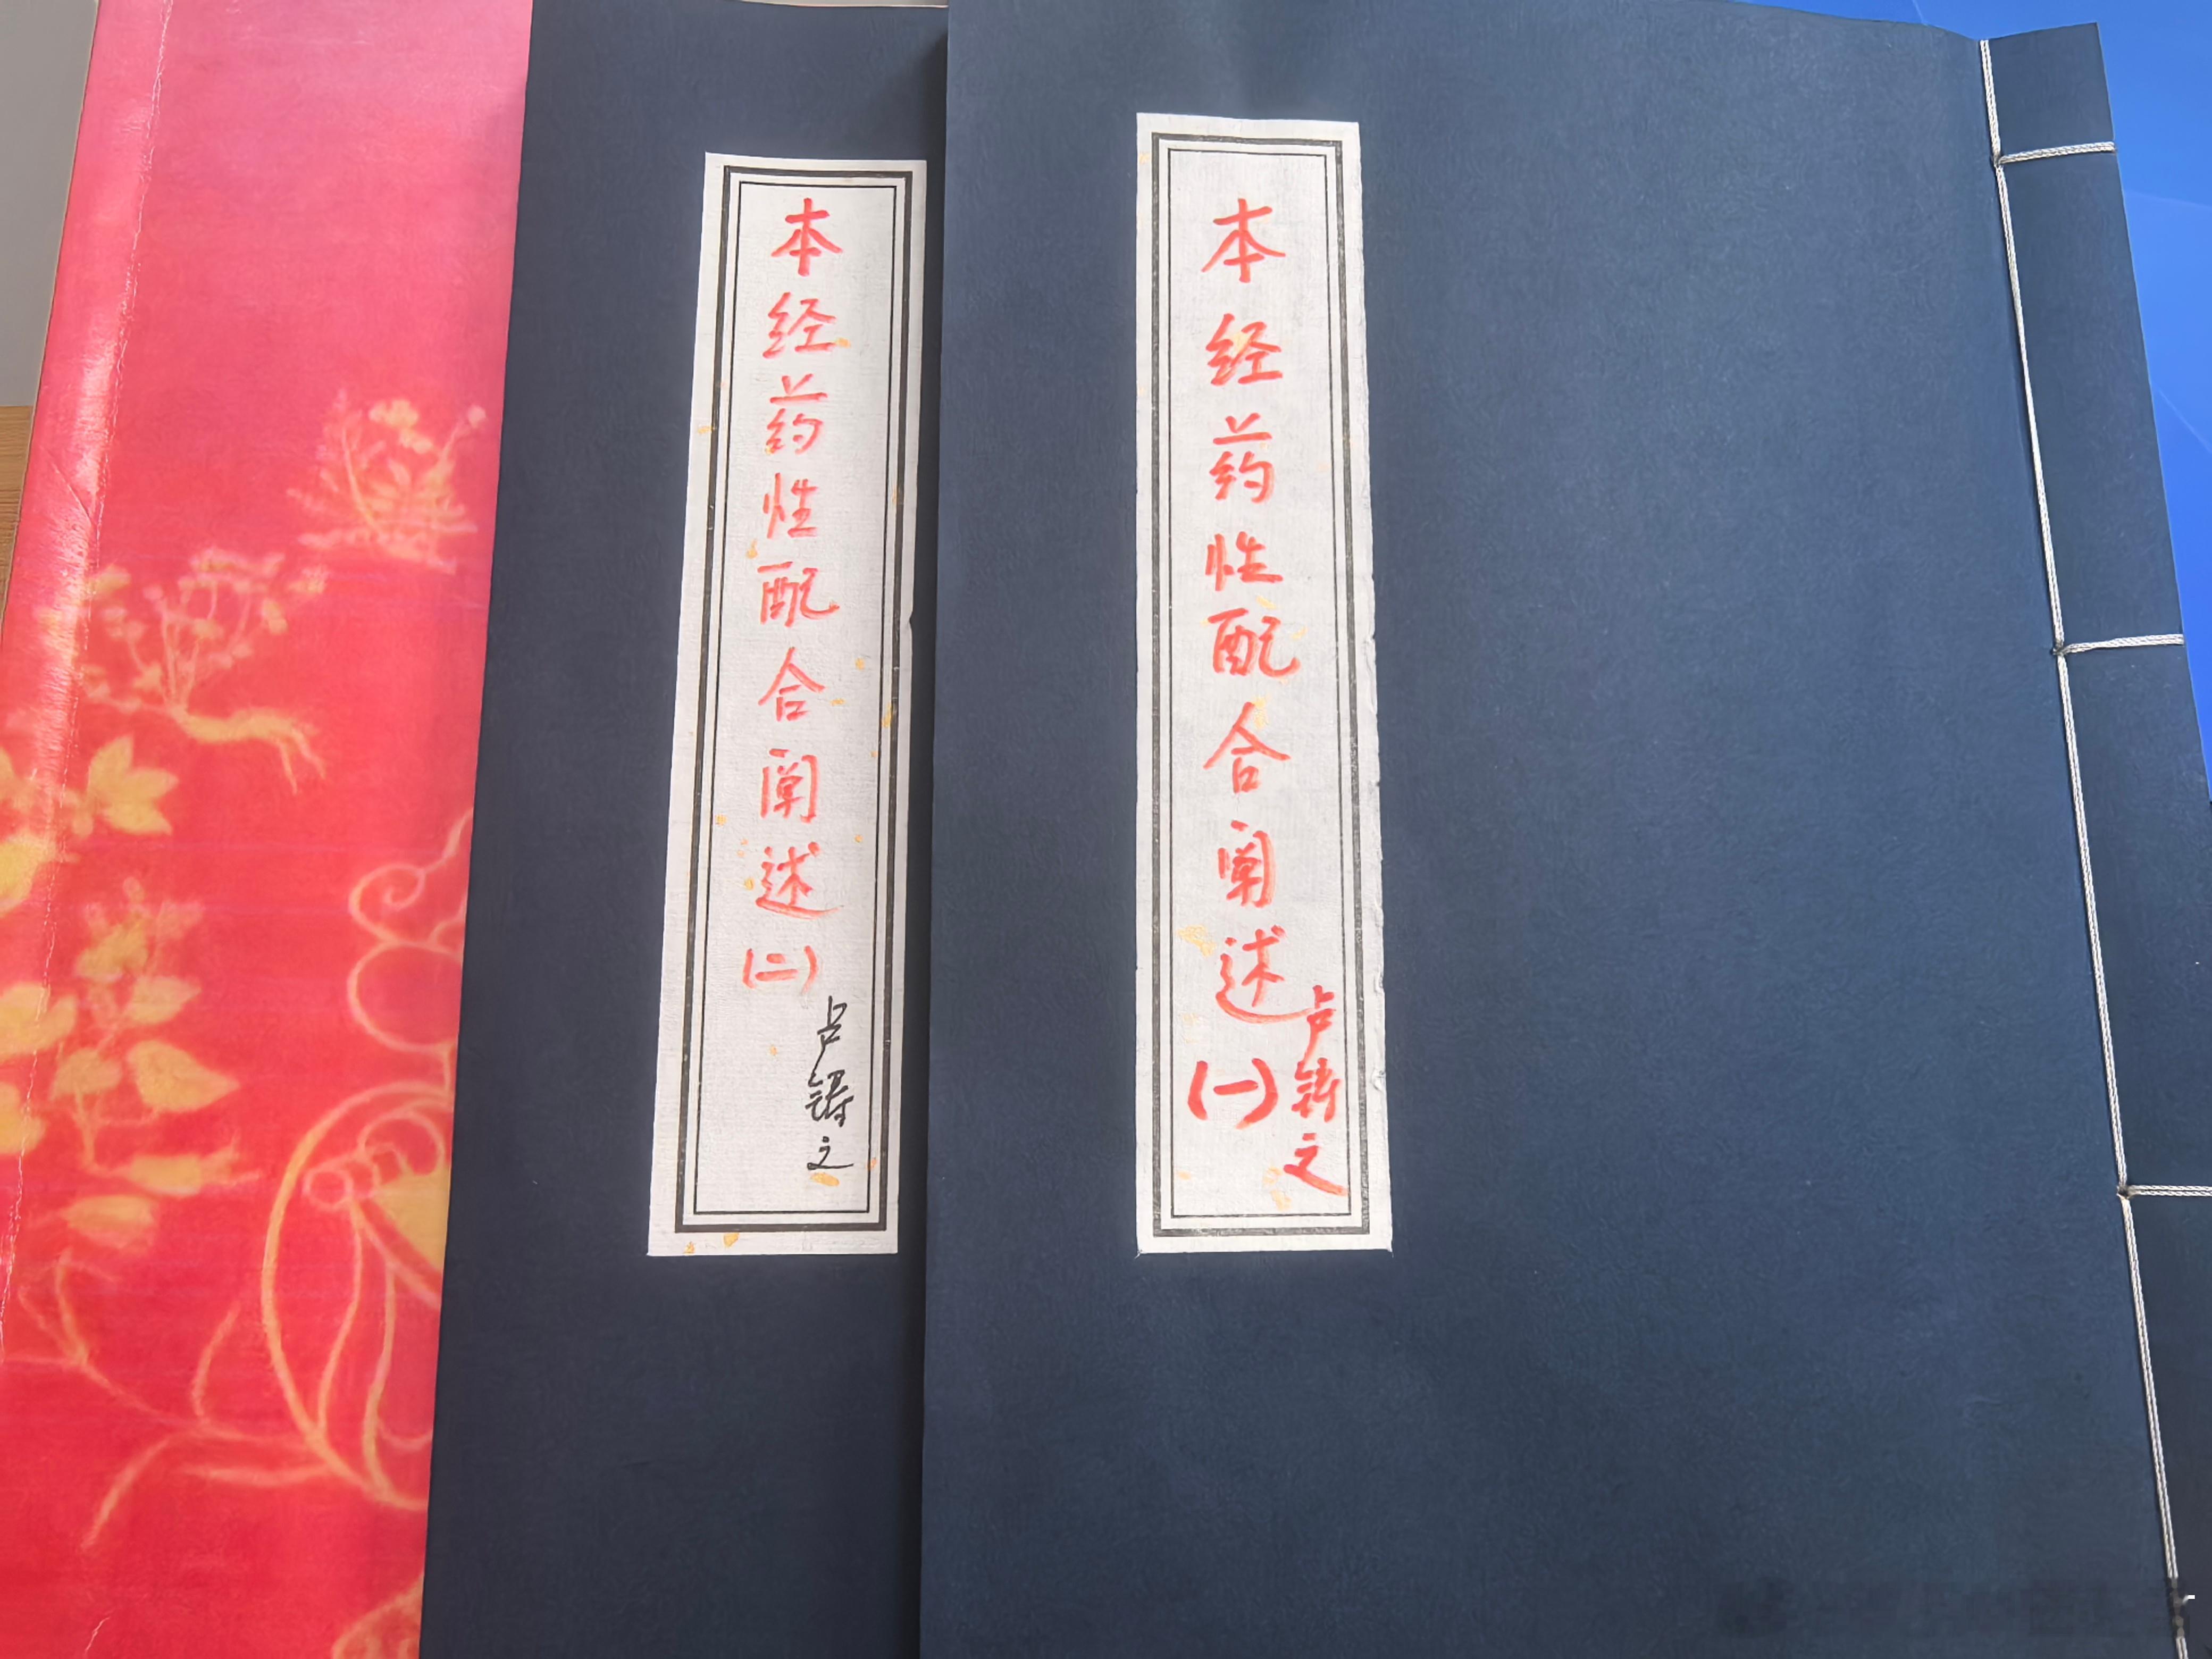 本经药性配合阐述(一)
卢铸之
本经药性配合阐述(二)
卢铸之